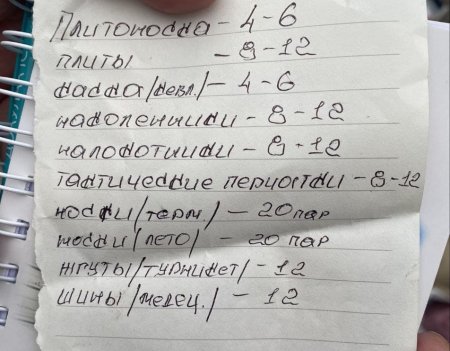 Плитоноска - 4-6
плиты - 8-12
каска/кевл./ - 4-6
наколенники - 8-12
налокотники - 8-12
тактические перчатки - 8-12
носки/терм/ - 20 пар
носки/лето/ - 20 пар
жгуты/турникет/ - 12
шины/медец./ - 12